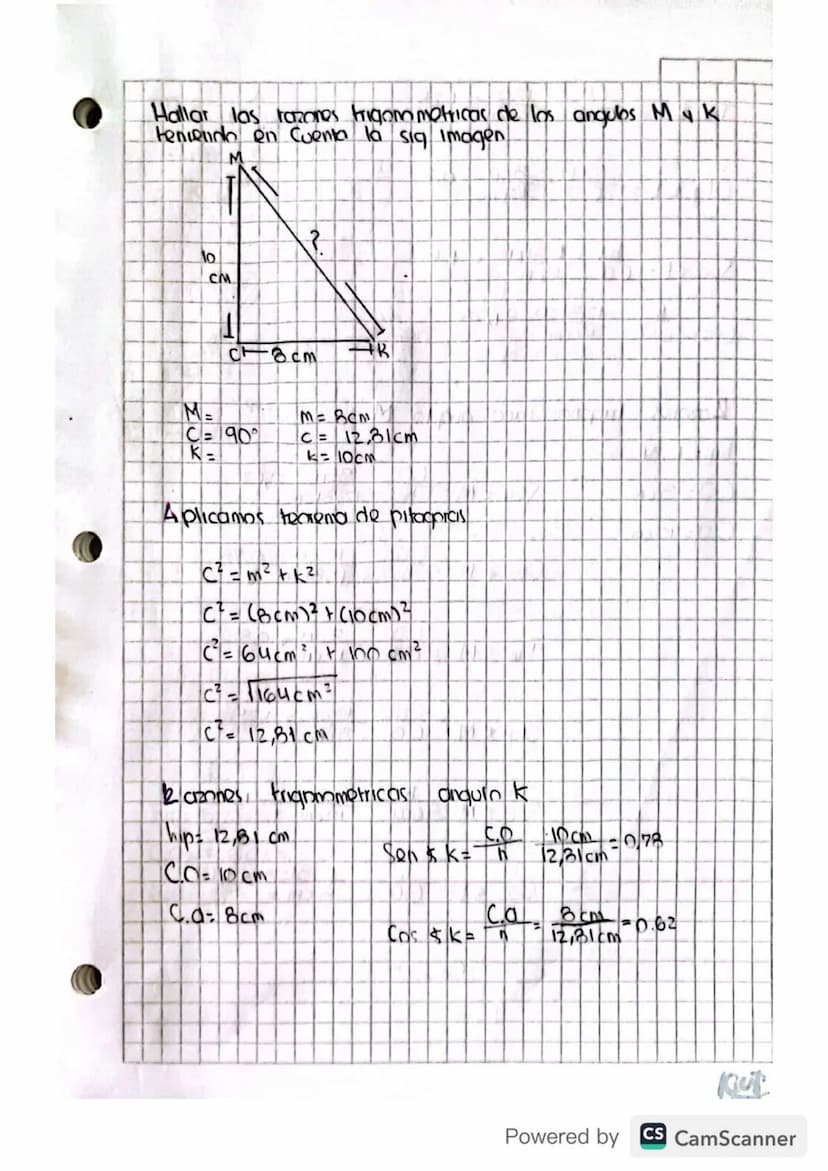 Hallar las razones trigonometricas de los angulos M y K
teniendo en cuenta la sig imagen
M
?
10
cm
C 8 cm K
M = m = 8cm
C = 90° c = 12,81cm
K = k = 10cm
Aplicamos teorema de pitagoras
C² = m² + k²
C² = (8cm)² + (10cm)²
C² = 64cm² + 100 cm²
C² = √164cm²
C² = 12,81 cm
Razones trigonometricas angulo K
hip = 12,81 cm
Sen ∡ K = C.O / h 10cm / 12,81cm = 0,78
C.O = 10 cm
C.a = 8cm
Cos ∡ K = C.a / h = 8cm / 12,81cm = 0.62
Powered by CS CamScanner